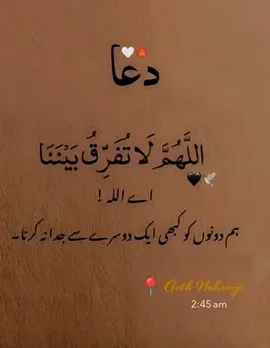 دعا
اللَّهُمَّ لَا تُفَرِّقُ بَيْنَنَا
اے اللہ !
ہم دونوں کو کبھی ایک دوسرے سے جدا نہ کرنا۔
2:45 am